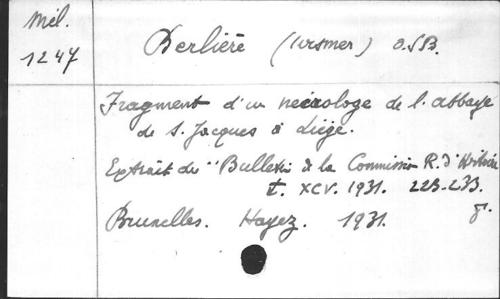 Mél.
1247
Berlière (Ursmer) O.S.B.
Fragment d'un nécrologe de l'abbaye
de S. Jacques à Liége.
Extrait du "Bulletin de la Commission R. d'Histoire
t. XCV. 1931. 223-233.
Bruxelles. Hayez. 1931. 8°.